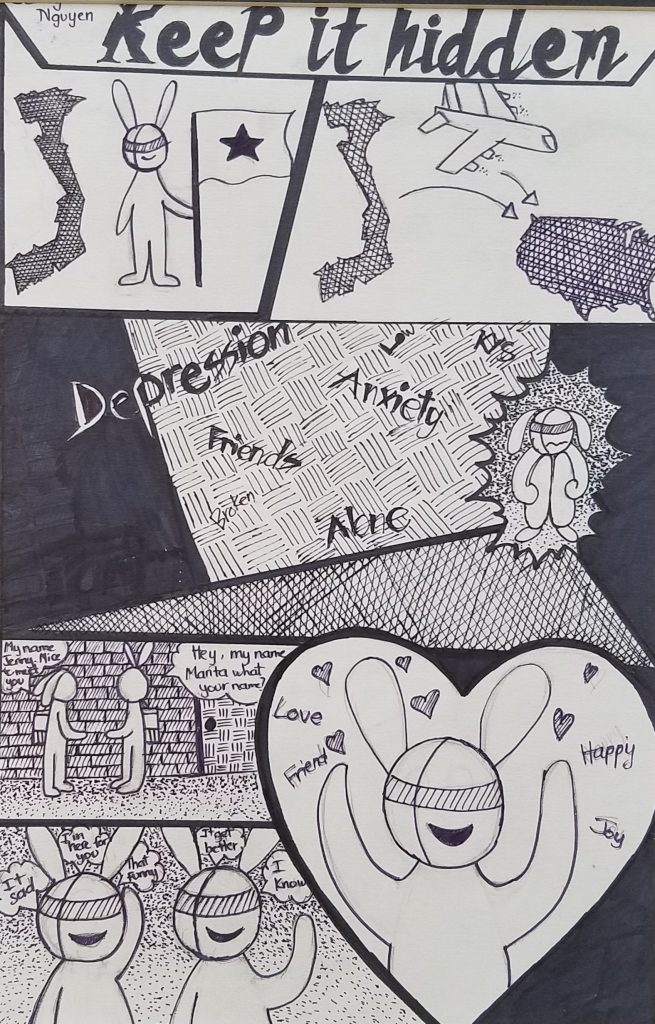 Nguyen
Keep it hidden
Depression
Low
KYS
Anxiety
Friends
Broken
Alone
My name
Jenny. Nice
to met
you
Hey, my name
Manta what
your name?
Love
Friend
Happy
Joy
It
sad
I'm
here for
you
That
funny
It get
better
I
Know